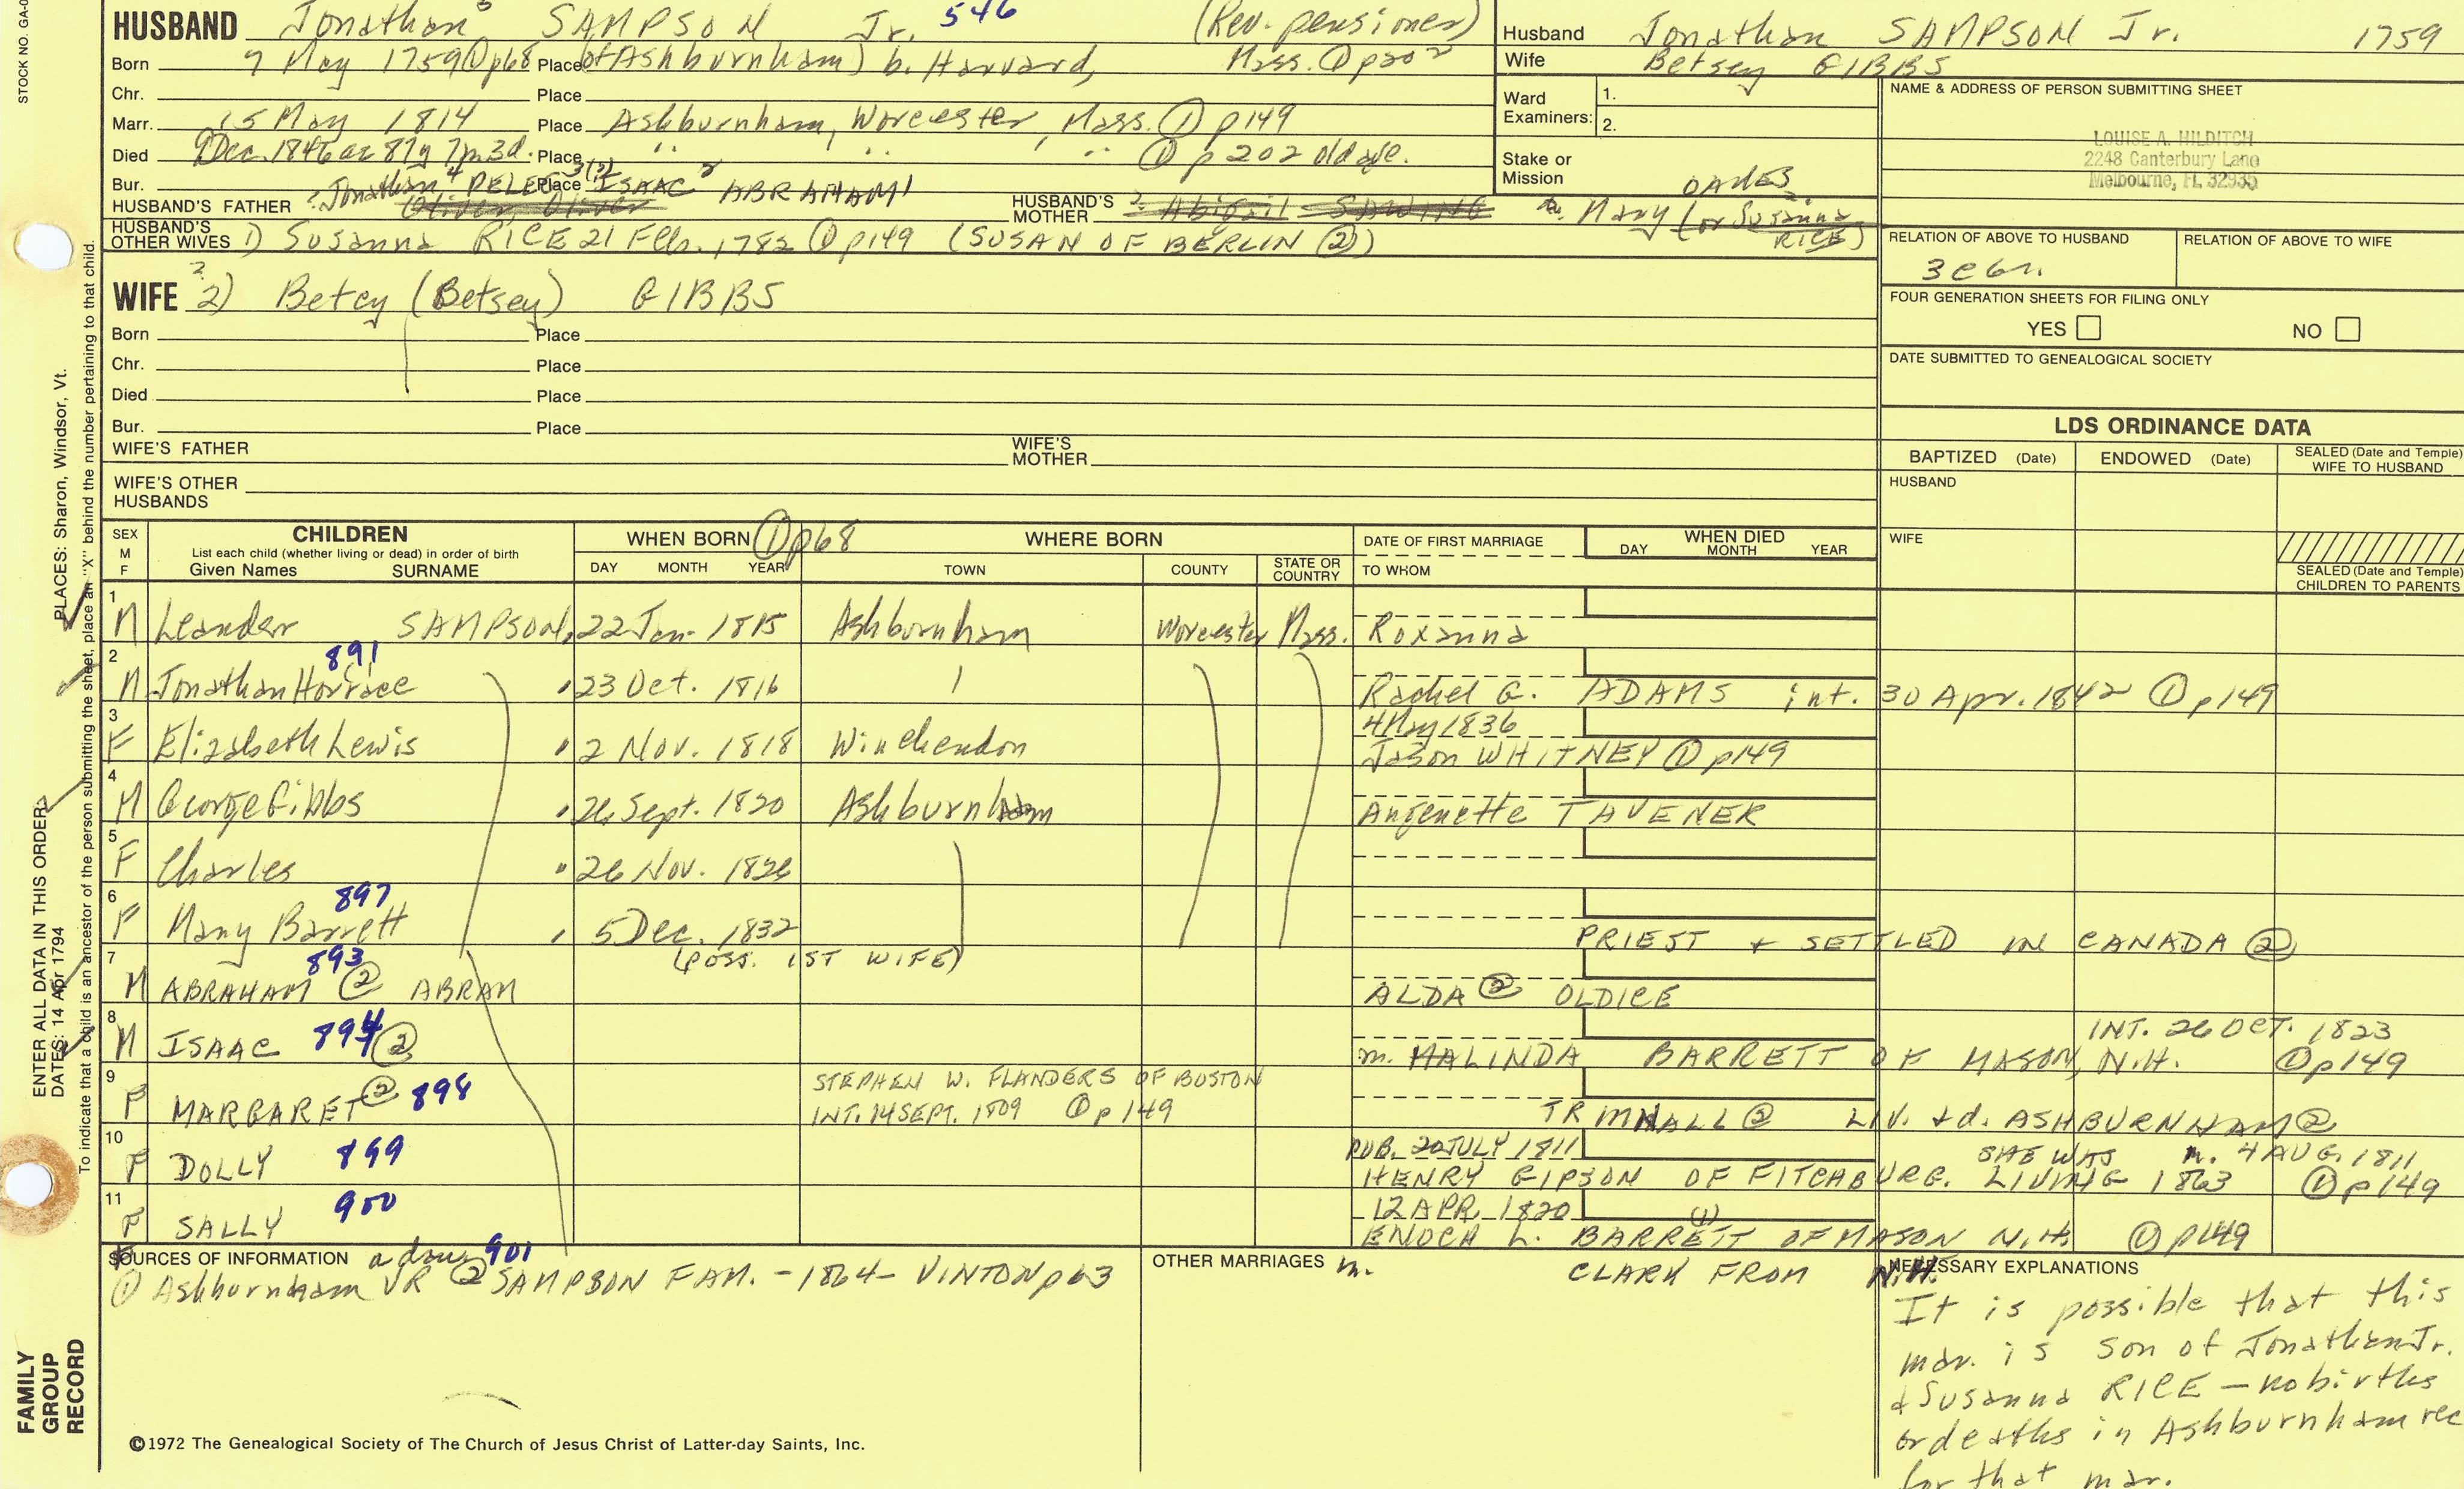 STOCK NO. GA-0
HUSBAND Jonathan 5 SAMPSON Jr. 546 (Rev. pensioner)
Born 7 May 1759 ① p68 Place (of Ashburnham) b. Harvard, Mass. ① p202
Chr. Place
Marr. 15 May 1814 Place Ashburnham, Worcester, Mass. ① p149
Died 9 Dec. 1846 ae 87y 7m 3d. Place " " " ① p 202 old age.
Bur. Place
HUSBAND'S FATHER ? Jonathan 4 PELEG 3(?) ISAAC 2 ABRAHAM 1 Oliver, Oliver
HUSBAND'S MOTHER ? Abigail SAWING Mary OAKES (or Susanna RICE)
HUSBAND'S OTHER WIVES 1) Susanna RICE 21 Feb. 1782 ① p149 (SUSAN OF BERLIN ②)
WIFE ? 2) Betcy (Betsey) GIBBS
Born Place
Chr. Place
Died Place
Bur. Place
WIFE'S FATHER WIFE'S MOTHER
WIFE'S OTHER HUSBANDS
Husband Jonathan SAMPSON Jr. 1759
Wife Betsey GIBBS
Ward Examiners: 1.
2.
Stake or Mission
NAME & ADDRESS OF PERSON SUBMITTING SHEET
LOUISE A. HILDITCH
2248 Canterbury Lane
Melbourne, FL 32935
RELATION OF ABOVE TO HUSBAND RELATION OF ABOVE TO WIFE
3c6r.
FOUR GENERATION SHEETS FOR FILING ONLY
YES NO
DATE SUBMITTED TO GENEALOGICAL SOCIETY
LDS ORDINANCE DATA
BAPTIZED (Date) ENDOWED (Date) SEALED (Date and Temple) WIFE TO HUSBAND
HUSBAND
WIFE
SEALED (Date and Temple) CHILDREN TO PARENTS
SEX M F
CHILDREN
List each child (whether living or dead) in order of birth
Given Names SURNAME
WHEN BORN ① p68
DAY MONTH YEAR
WHERE BORN
TOWN COUNTY STATE OR COUNTRY
DATE OF FIRST MARRIAGE
TO WHOM
WHEN DIED
DAY MONTH YEAR
1 M Leander SAMPSON 22 Jan. 1815 Ashburnham Worcester Mass. Roxanna
2 M Jonathan Horrace 891 23 Oct. 1816 Rachel G. ADAMS int. 30 Apr. 1842 ① p149
3 F Elizabeth Lewis 2 Nov. 1818 Winchendon 4 May 1836
Jason WHITNEY ① p149
4 M George Gibbs 26 Sept. 1820 Ashburnham Angenette TAVENER
5 F Charles 26 Nov. 1826
6 F Mary Barrett 897 5 Dec. 1832
PRIEST + SETTLED IN CANADA ②
(POSS. 1ST WIFE)
7 M ABRAHAM ② ABRAM 893 ALDA ② OLDICE
8 M ISAAC 894 ② INT. 26 OCT. 1823
m. MALINDA BARRETT OF MASON, N.H. ① p149
9 F MARGARET ② 898 STEPHEN W. FLANDERS OF BOSTON
INT. 14 SEPT. 1809 ① p149
LIV. + d. ASHBURNHAM ②
10 F DOLLY 899 PUB. 20 JULY 1811 SHE WAS m. 4 AUG. 1811
HENRY GIPSON OF FITCHBURG. LIVING 1863 ① p149
11 F SALLY 900 12 APR. 1820 (1)
ENOCH L. BARRETT OF MASON N.H. ① p149
SOURCES OF INFORMATION a dau. 901
① Ashburnham VR ② SAMPSON FAM. - 1864 - VINTON p63
OTHER MARRIAGES m. CLARK FROM N.H.
NECESSARY EXPLANATIONS
It is possible that this
mar. is son of Jonathan Jr.
& Susanna RICE - no births
or deaths in Ashburnham rec
for that mar.
©1972 The Genealogical Society of The Church of Jesus Christ of Latter-day Saints, Inc.
FAMILY GROUP RECORD
ENTER ALL DATA IN THIS ORDER:
DATES: 14 Apr 1794
PLACES: Sharon, Windsor, Vt.
To indicate that a child is an ancestor of the person submitting the sheet, place an "X" behind the number pertaining to that child.